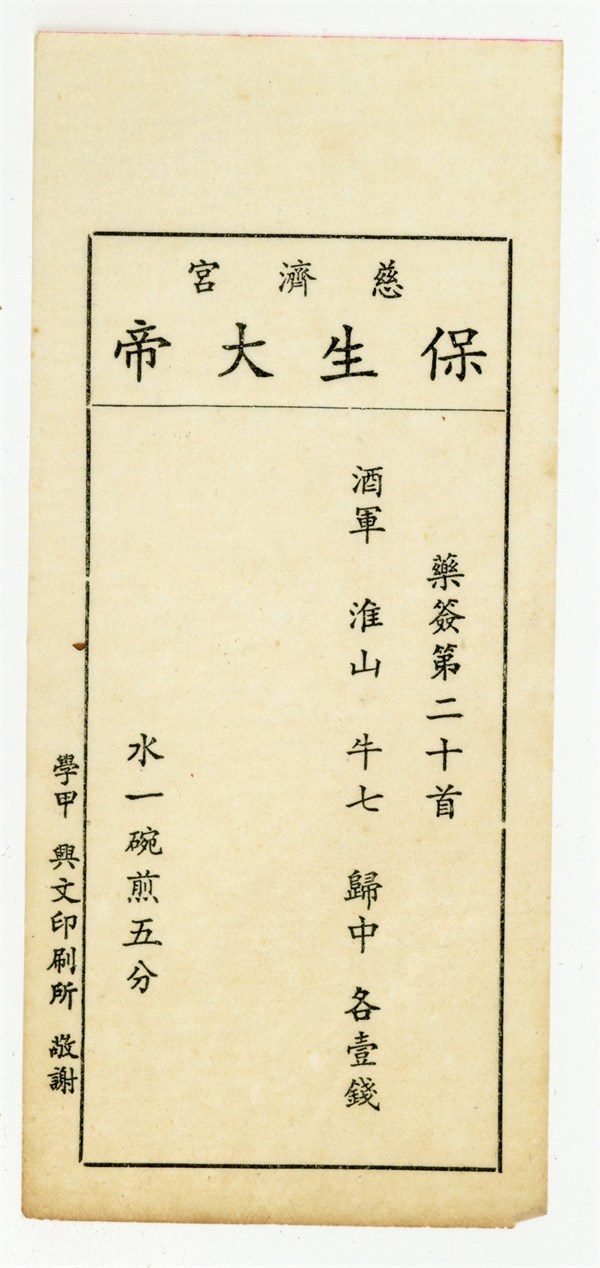 慈濟宮
保生大帝
藥簽第二十首
酒軍 淮山 牛七 歸中 各壹錢
水一碗煎五分
學甲 興文印刷所 敬謝